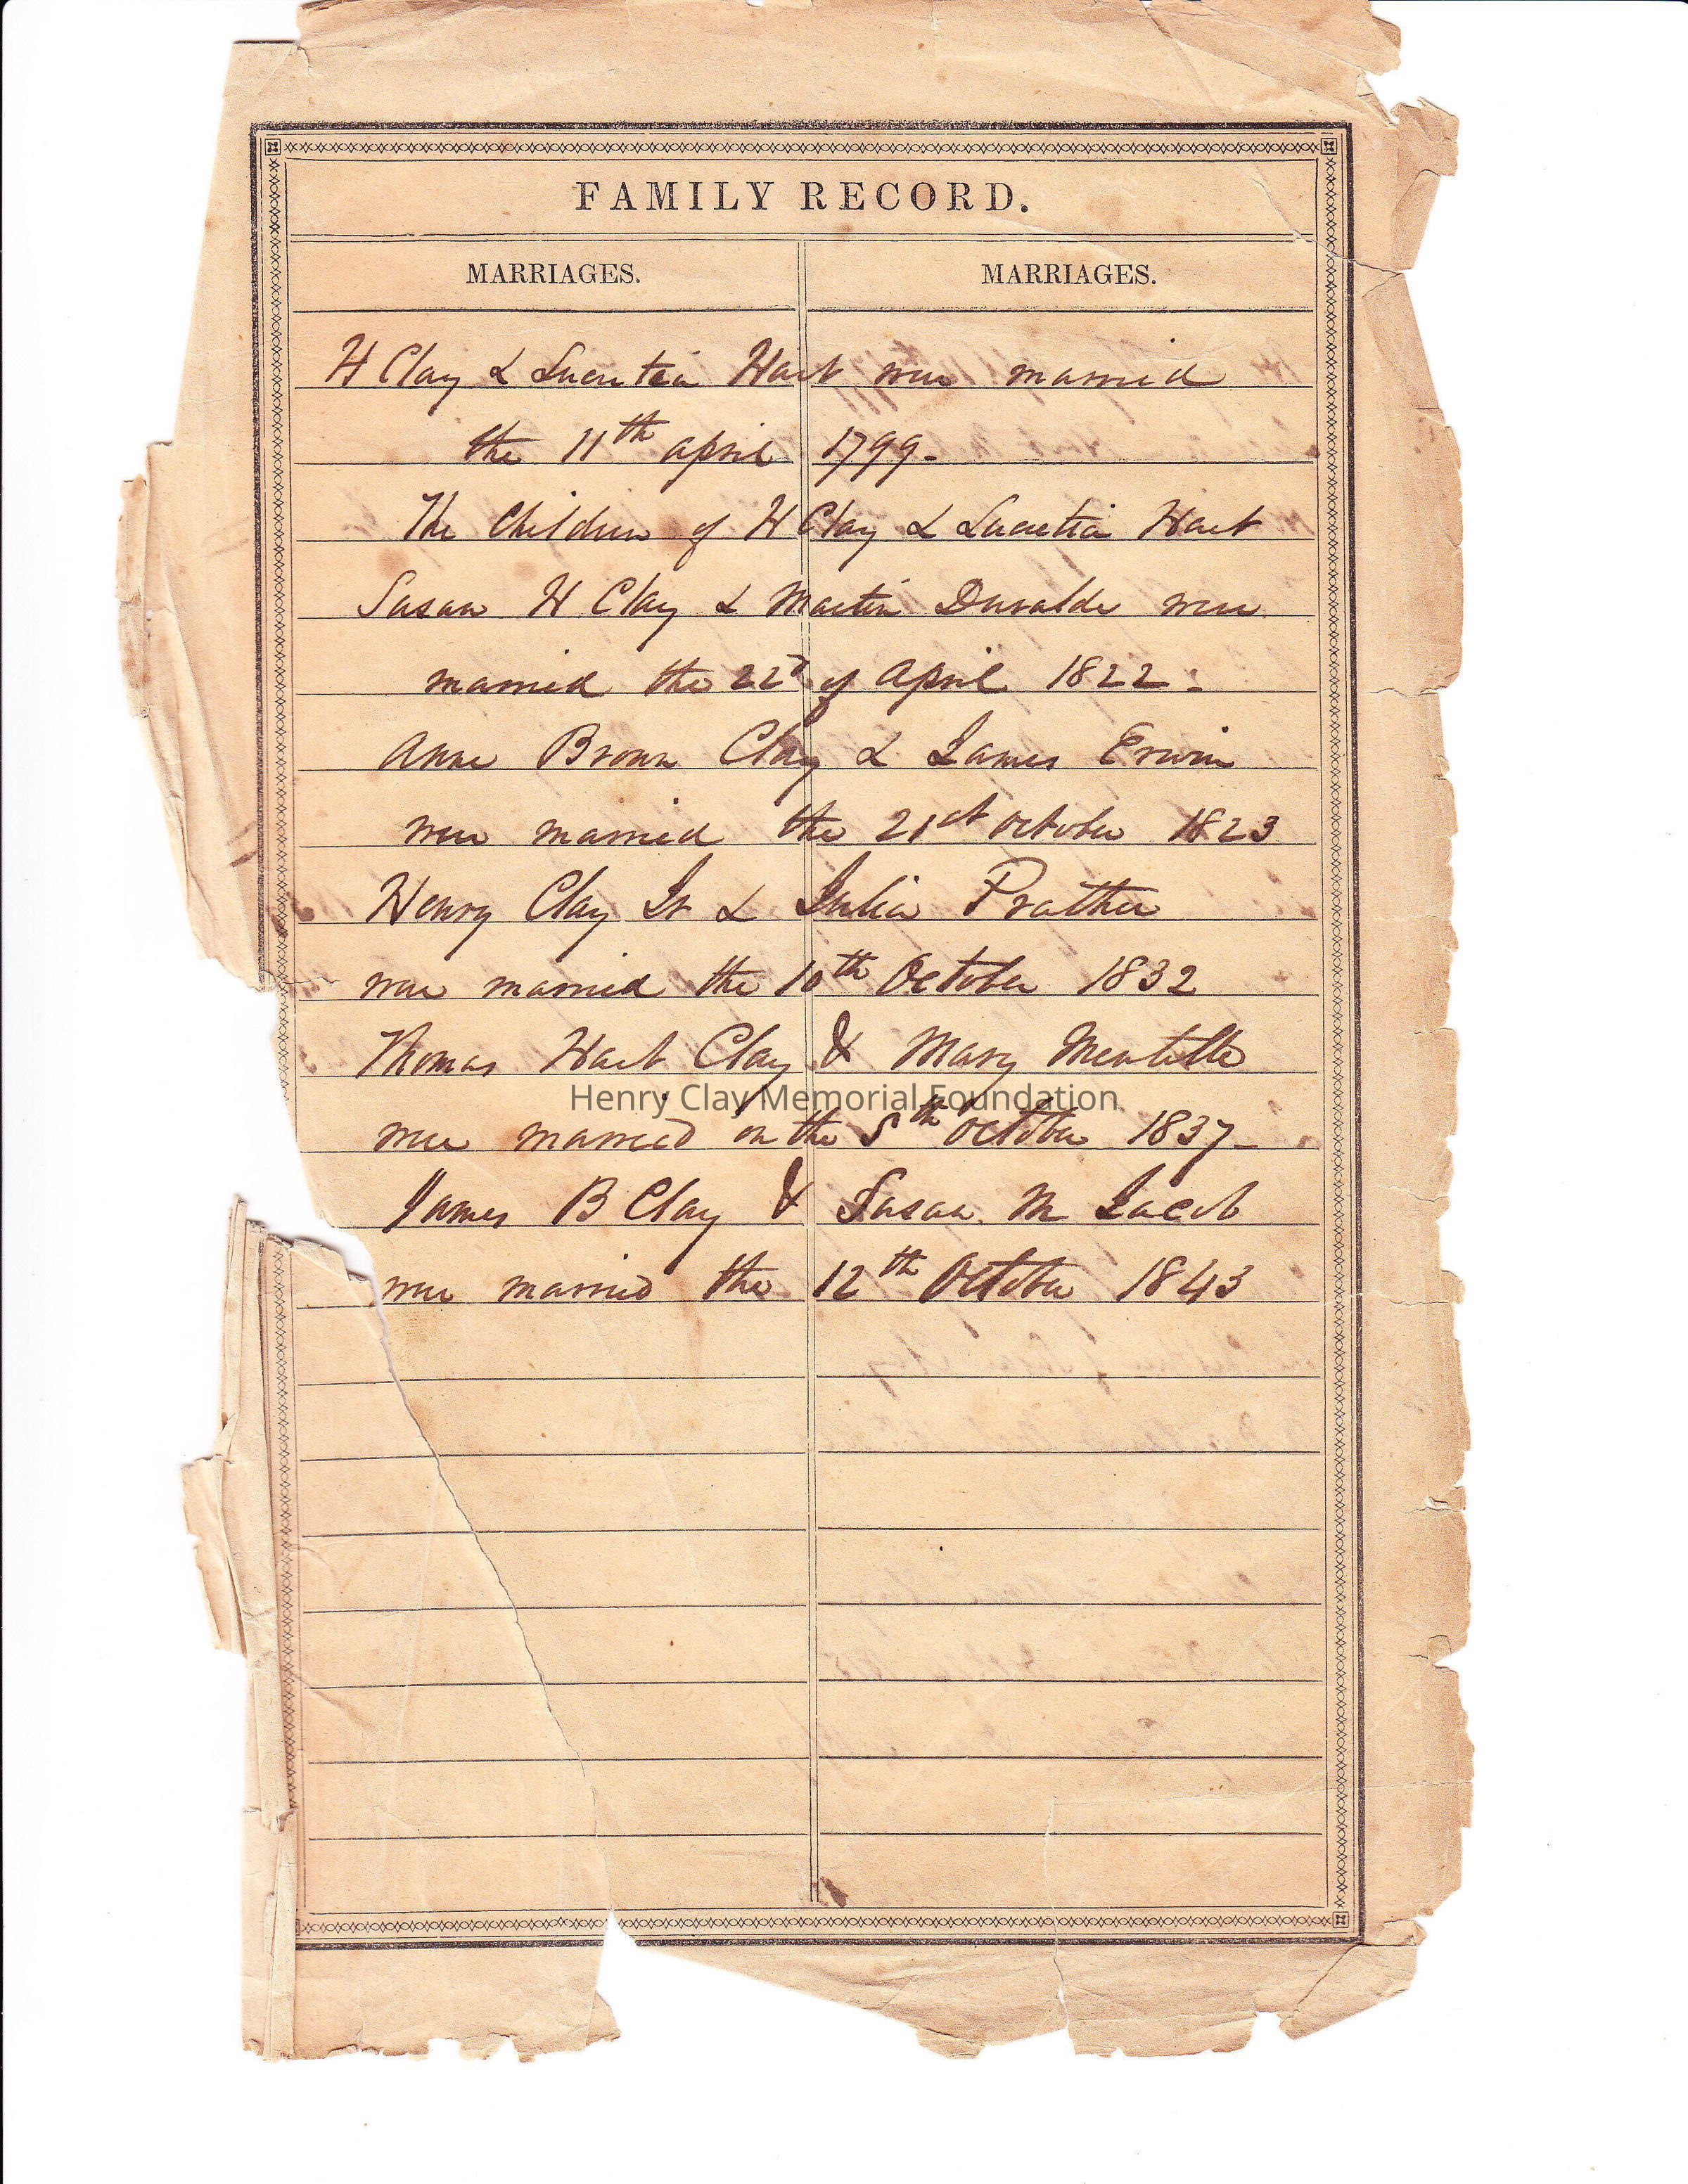 FAMILY RECORD.
MARRIAGES. MARRIAGES.
H Clay & Lucretia Hart were married
the 11th april 1799-
The Children of H Clay & Lucretia Hart
Susan H Clay & Martin Duralde were
married the 22d of April 1822-
Anne Brown Clay & James Erwin
were married the 21st October 1823
Henry Clay Jr & Julia Prather
were married the 10th October 1832
Thomas Hart Clay & Mary Mentelle
Henry Clay Memorial Foundation
were married on the 5th October 1837-
James B Clay & Susan M Jacob
were married the 12th October 1843